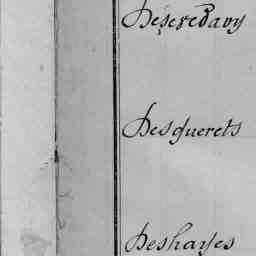 Deseredavy
Desquerets
Deshayes